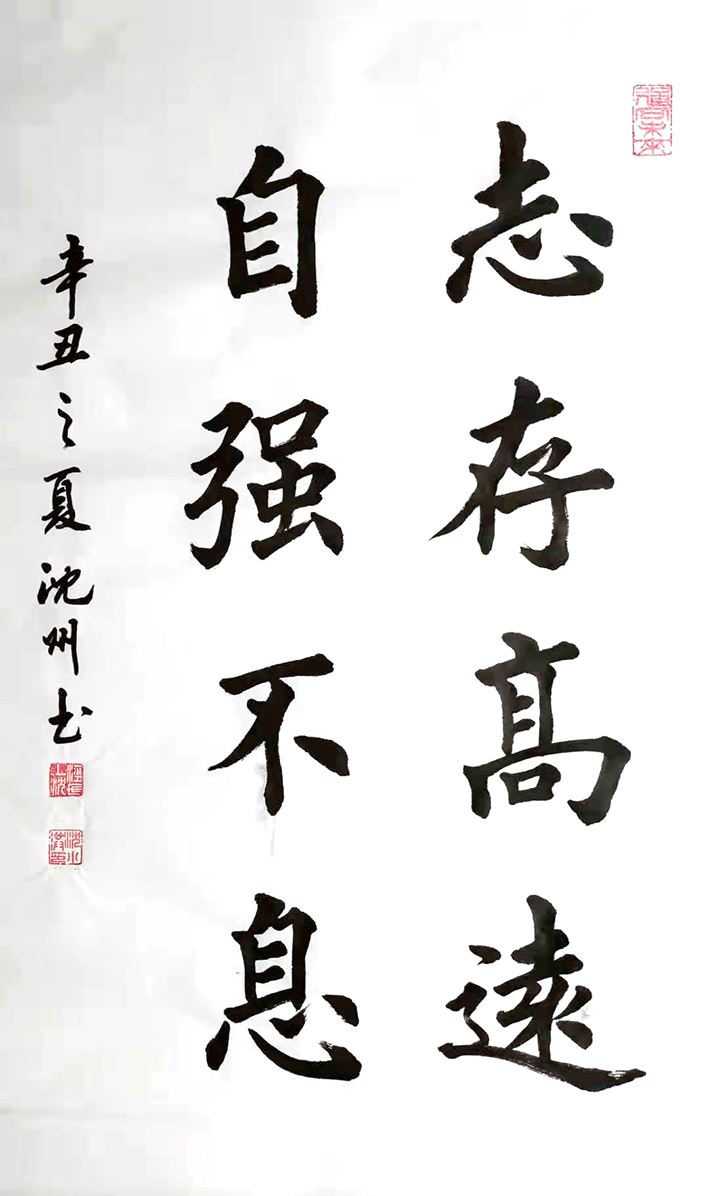 志存高遠
自强不息
辛丑之夏沈州书